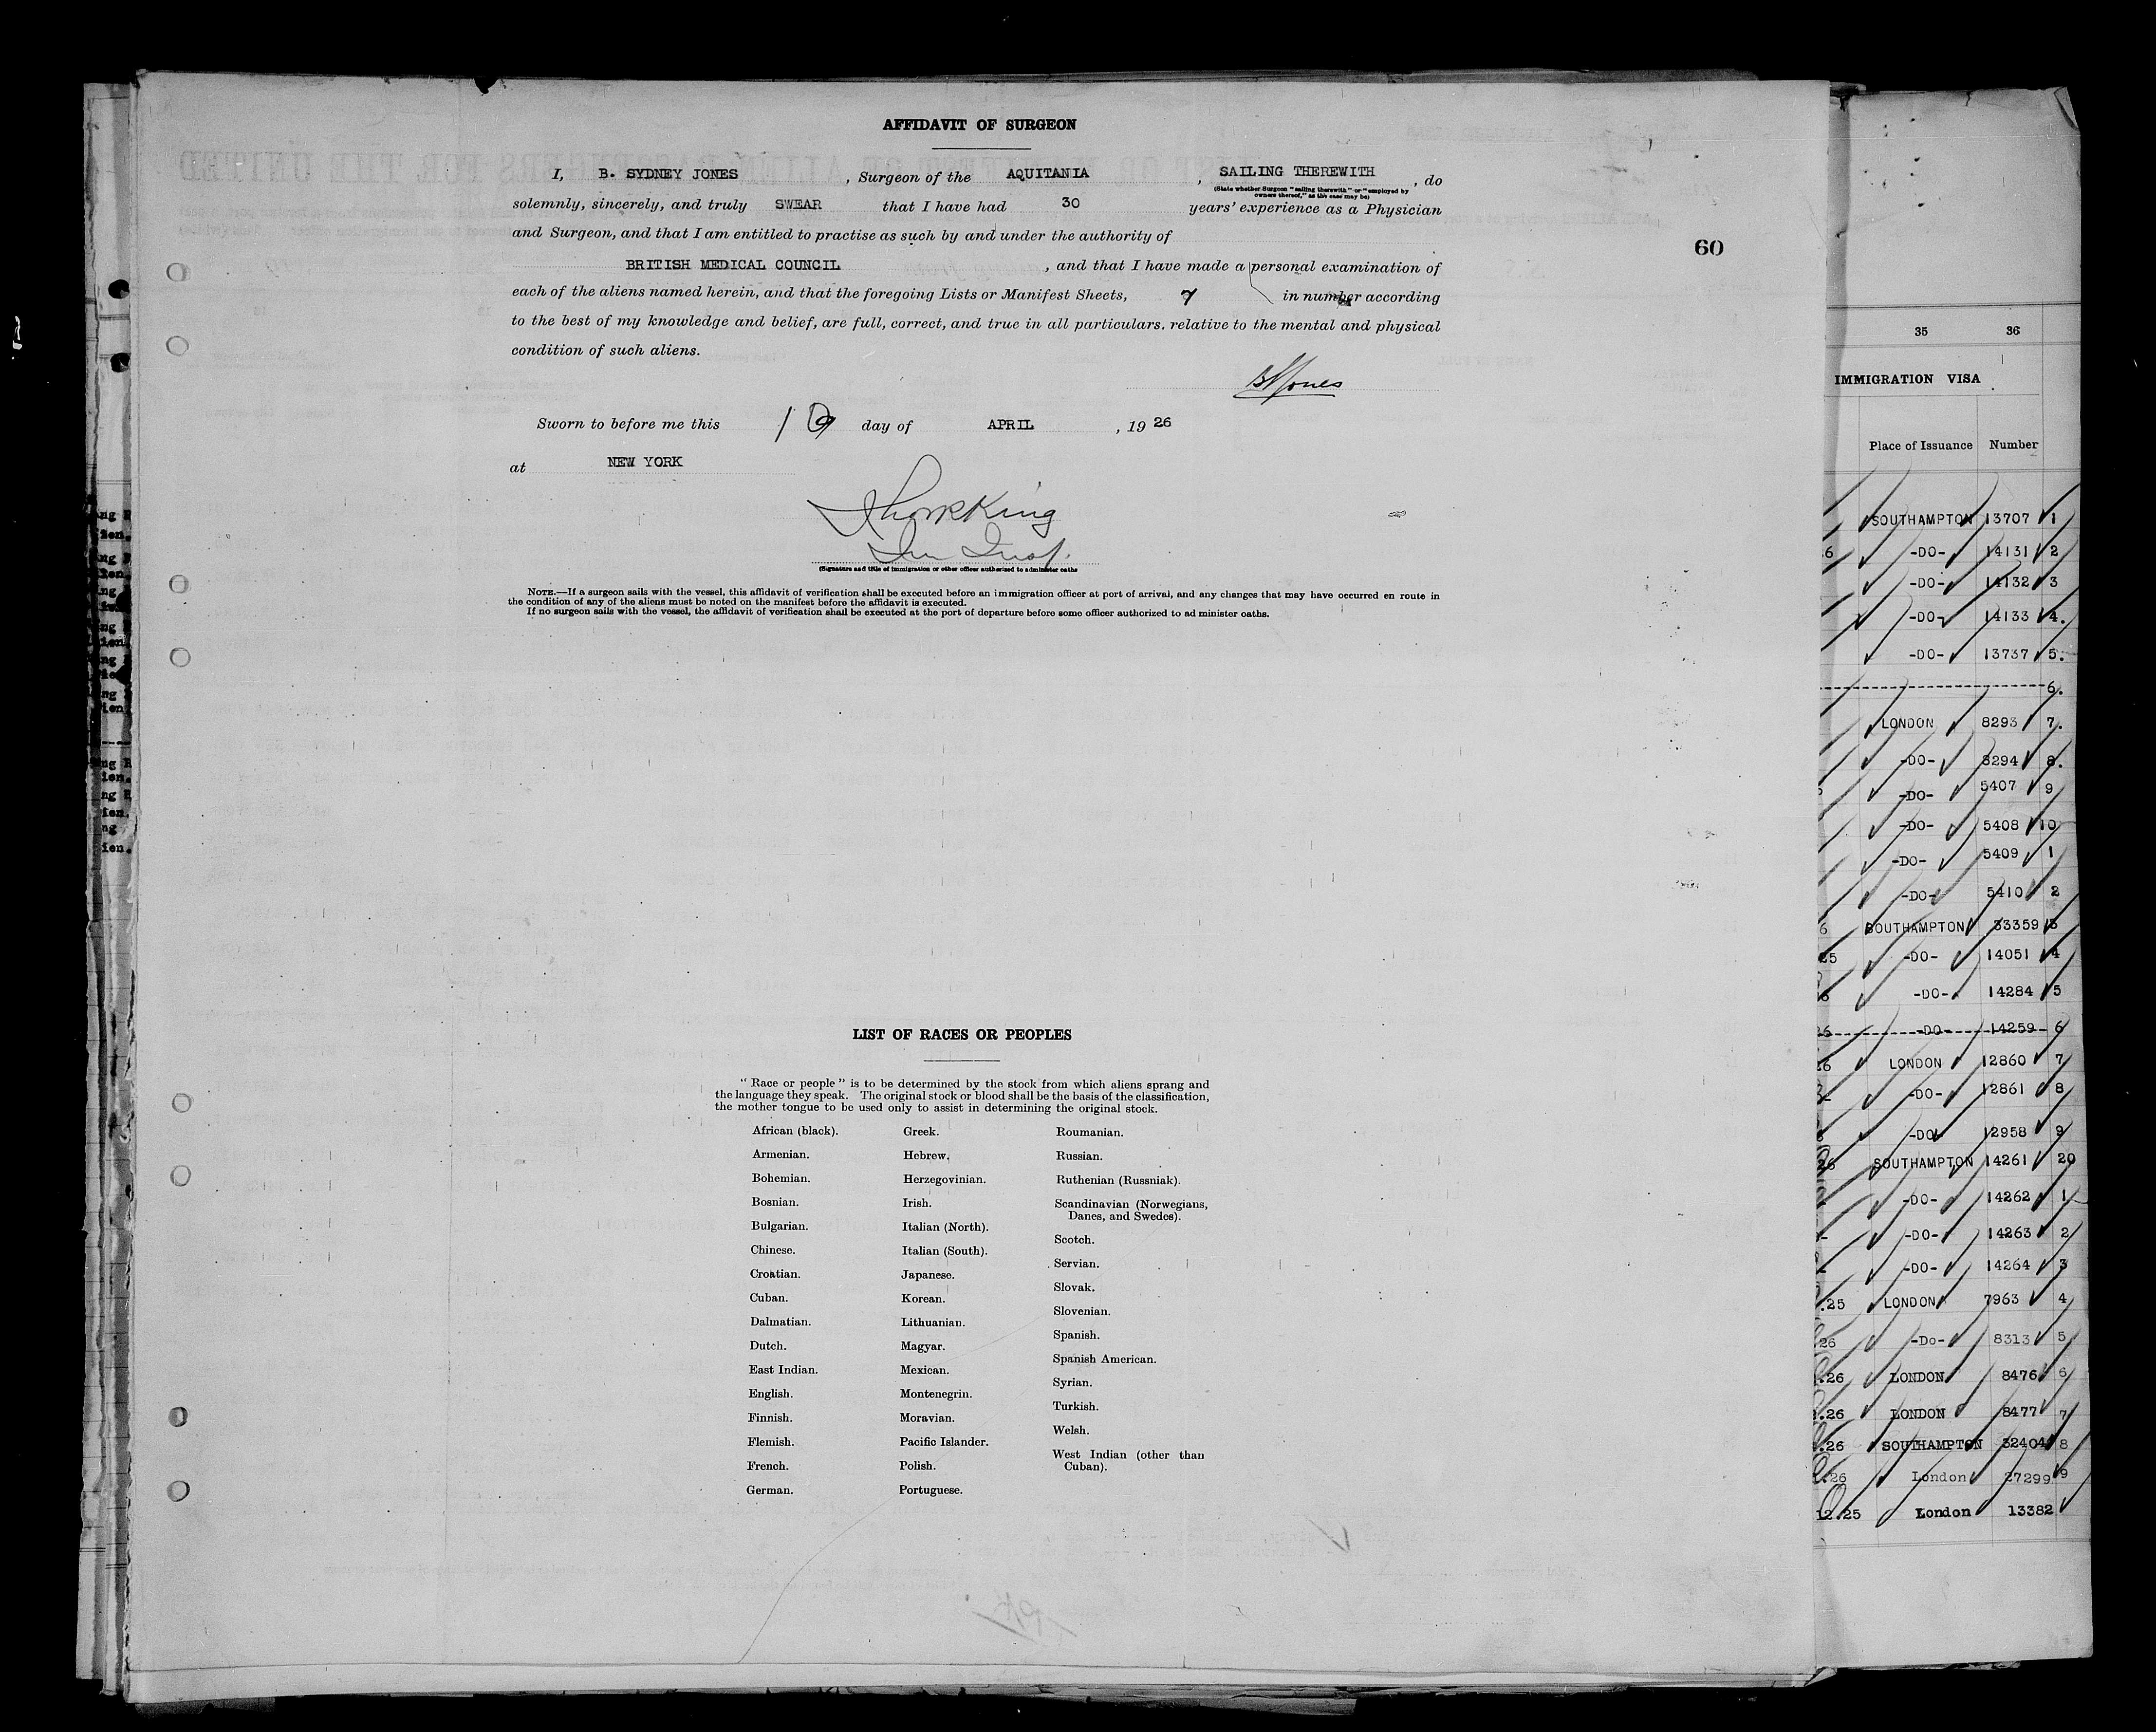 AFFIDAVIT OF SURGEON
I, B. SYDNEY JONES, Surgeon of the AQUITANIA, SAILING THEREWITH, do
(State whether Surgeon "sailing therewith" or "employed by
owners thereof," as the case may be)
solemnly, sincerely, and truly SWEAR that I have had 30 years' experience as a Physician
and Surgeon, and that I am entitled to practise as such by and under the authority of
BRITISH MEDICAL COUNCIL, and that I have made a personal examination of
each of the aliens named herein, and that the foregoing Lists or Manifest Sheets, 7 in number according
to the best of my knowledge and belief, are full, correct, and true in all particulars. relative to the mental and physical
condition of such aliens.
BSJones
Sworn to before me this 19 day of APRIL, 1926
at NEW YORK
King
Im Insp.
(Signature and title of immigration or other officer authorized to administer oaths
NOTE.—If a surgeon sails with the vessel, this affidavit of verification shall be executed before an immigration officer at port of arrival, and any changes that may have occurred en route in
the condition of any of the aliens must be noted on the manifest before the affidavit is executed.
If no surgeon sails with the vessel, the affidavit of verification shall be executed at the port of departure before some officer authorized to ad minister oaths.
60
LIST OF RACES OR PEOPLES
"Race or people" is to be determined by the stock from which aliens sprang and
the language they speak. The original stock or blood shall be the basis of the classification,
the mother tongue to be used only to assist in determining the original stock.
African (black).
Armenian.
Bohemian.
Bosnian.
Bulgarian.
Chinese.
Croatian.
Cuban.
Dalmatian.
Dutch.
East Indian.
English.
Finnish.
Flemish.
French.
German.
Greek.
Hebrew.
Herzegovinian.
Irish.
Italian (North).
Italian (South).
Japanese.
Korean.
Lithuanian.
Magyar.
Mexican.
Montenegrin.
Moravian.
Pacific Islander.
Polish.
Portuguese.
Roumanian.
Russian.
Ruthenian (Russniak).
Scandinavian (Norwegians,
Danes, and Swedes).
Scotch.
Servian.
Slovak.
Slovenian.
Spanish.
Spanish American.
Syrian.
Turkish.
Welsh.
West Indian (other than
Cuban).
35 36
IMMIGRATION VISA
Place of Issuance Number
SOUTHAMPTON 13707 1
-DO- 14131 2
-DO- 14132 3
-DO- 14133 4.
-DO- 13737 5.
6.
LONDON 8293 7.
-DO- 8294 8.
-DO- 5407 9
-DO- 5408 10
-DO- 5409 1
-DO- 5410 2
SOUTHAMPTON 33359 3
25 -DO- 14051 4
-DO- 14284 5
26 -DO- 14259 6
26 LONDON 12860 7
-DO- 12861 8
-DO- 12958 9
26 SOUTHAMPTON 14261 20
-DO- 14262 1
-DO- 14263 2
-DO- 14264 3
.25 LONDON 7963 4
26 -Do- 8313 5
.26 LONDON 8476 6
.26 LONDON 8477 7
.26 SOUTHAMPTON 32404 8
.26 London 27299 9
12.25 London 13382